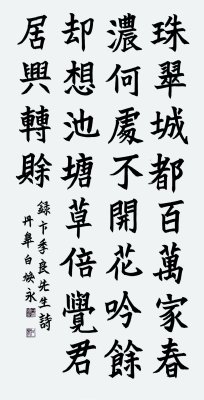 珠翠城都百萬家春
濃何處不開花吟餘
却想池塘草倍覺君
居興轉賒
錄卞季良先生詩
丹皐白煥永